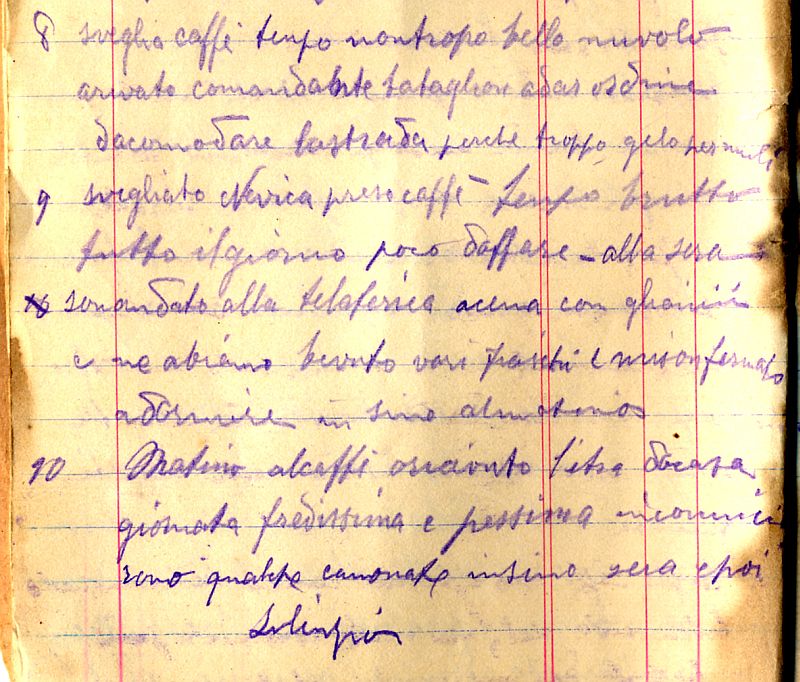 8 sveglia caffè tempo nontropo bello nuvolo
arivato comandante bataglion adar ordine
dacomodare lastrada perche troppo gelo per muli
9 svegliato Nevica preso caffè tempo brutto
tutto il giorno poco daffare - alla sera
sonandato alla telaferica acena con gliamici
e ne abiamo bevuto vari fiaschi e misonfermato
adormire in sino almatino
10 Matino alcaffè oriceuto letra dacasa
giornata fredissima e pessima incominci
rono qualche canonate insino sera epoi